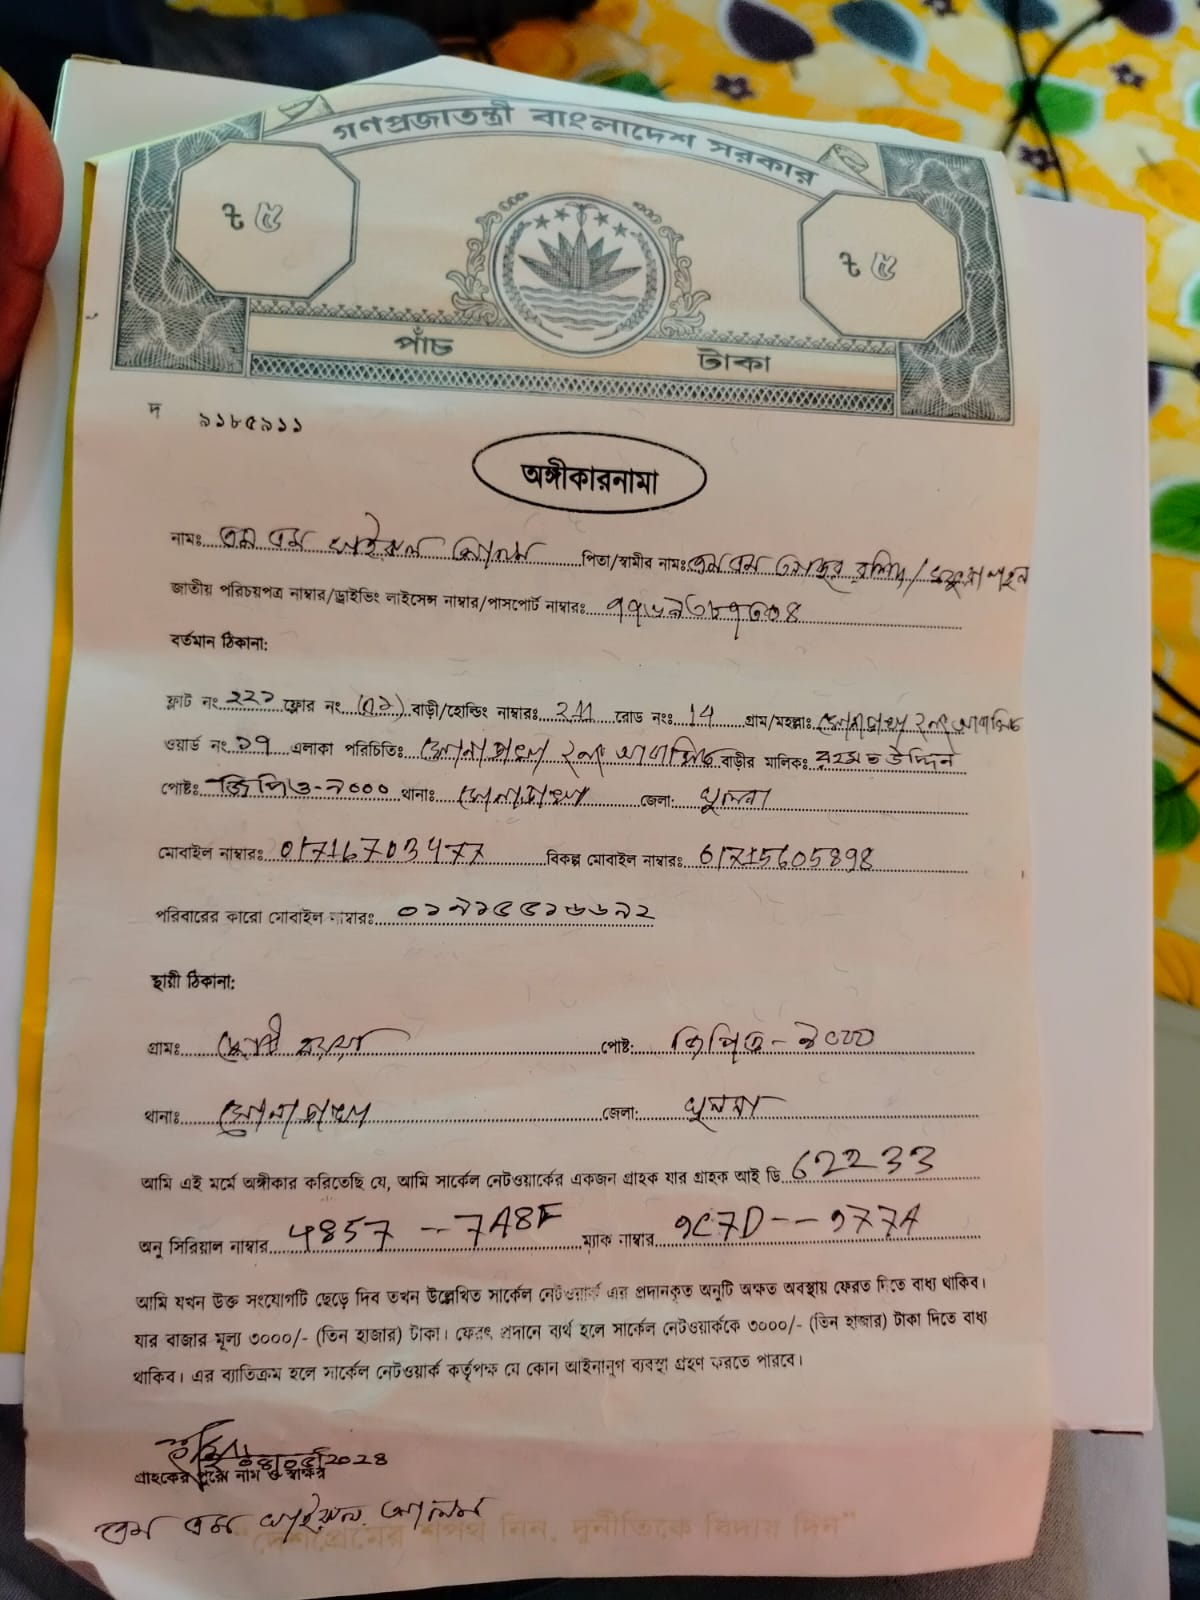 গণপ্রজাতন্ত্রী বাংলাদেশ সরকার
৳ ৫ ৳ ৫
পাঁচ টাকা
দ ৯১৮৫৯১১
অঙ্গীকারনামা
নামঃ এম এম খাইরুল আলম পিতা/স্বামীর নামঃ এম এম রশিদ/
জাতীয় পরিচয়পত্র নাম্বার/ড্রাইভিং লাইসেন্স নাম্বার/পাসপোর্ট নাম্বারঃ
বর্তমান ঠিকানা:
ফ্লাট নং ২২১ ফ্লোর নং বাড়ী/হোল্ডিং নাম্বারঃ 211 রোড নংঃ 14 গ্রাম/মহল্লাঃ সোনাডাঙ্গা ২নং আবাসিক
ওয়ার্ড নং ১৭ এলাকা পরিচিতিঃ সোনাডাঙ্গা ২নং আবাসিক বাড়ীর মালিকঃ রহমত উদ্দিন
পোষ্টঃ জিপিও-৯০০০ থানাঃ সোনাডাঙ্গা জেলা: খুলনা
মোবাইল নাম্বারঃ 01716703477 বিকল্প মোবাইল নাম্বারঃ 01715605898
পরিবারের কারো মোবাইল নাম্বারঃ ০১৯১৫৫১৬৬৯২
স্থায়ী ঠিকানা:
গ্রামঃ পোষ্ট: জিপিও-৯০০০
থানাঃ সোনাডাঙ্গা জেলা: খুলনা
আমি এই মর্মে অঙ্গীকার করিতেছি যে, আমি সার্কেল নেটওয়ার্কের একজন গ্রাহক যার গ্রাহক আই ডি 62233
অনু সিরিয়াল নাম্বার 4857 -- 7A8F ম্যাক নাম্বার 9C7D -- 977A
আমি যখন উক্ত সংযোগটি ছেড়ে দিব তখন উল্লেখিত সার্কেল নেটওয়ার্ক এর প্রদানকৃত অনুটি অক্ষত অবস্থায় ফেরত দিতে বাধ্য থাকিব।
যার বাজার মূল্য ৩০০০/- (তিন হাজার) টাকা। ফেরৎ প্রদানে ব্যর্থ হলে সার্কেল নেটওয়ার্ককে ৩০০০/- (তিন হাজার) টাকা দিতে বাধ্য
থাকিব। এর ব্যতিক্রম হলে সার্কেল নেটওয়ার্ক কর্তৃপক্ষ যে কোন আইনানুগ ব্যবস্থা গ্রহণ করতে পারবে।
গ্রাহকের পুরো নাম ও স্বাক্ষর
এম এম খাইরুল আলম
"দেশপ্রেমের শপথ নিন, দুর্নীতিকে বিদায় দিন"